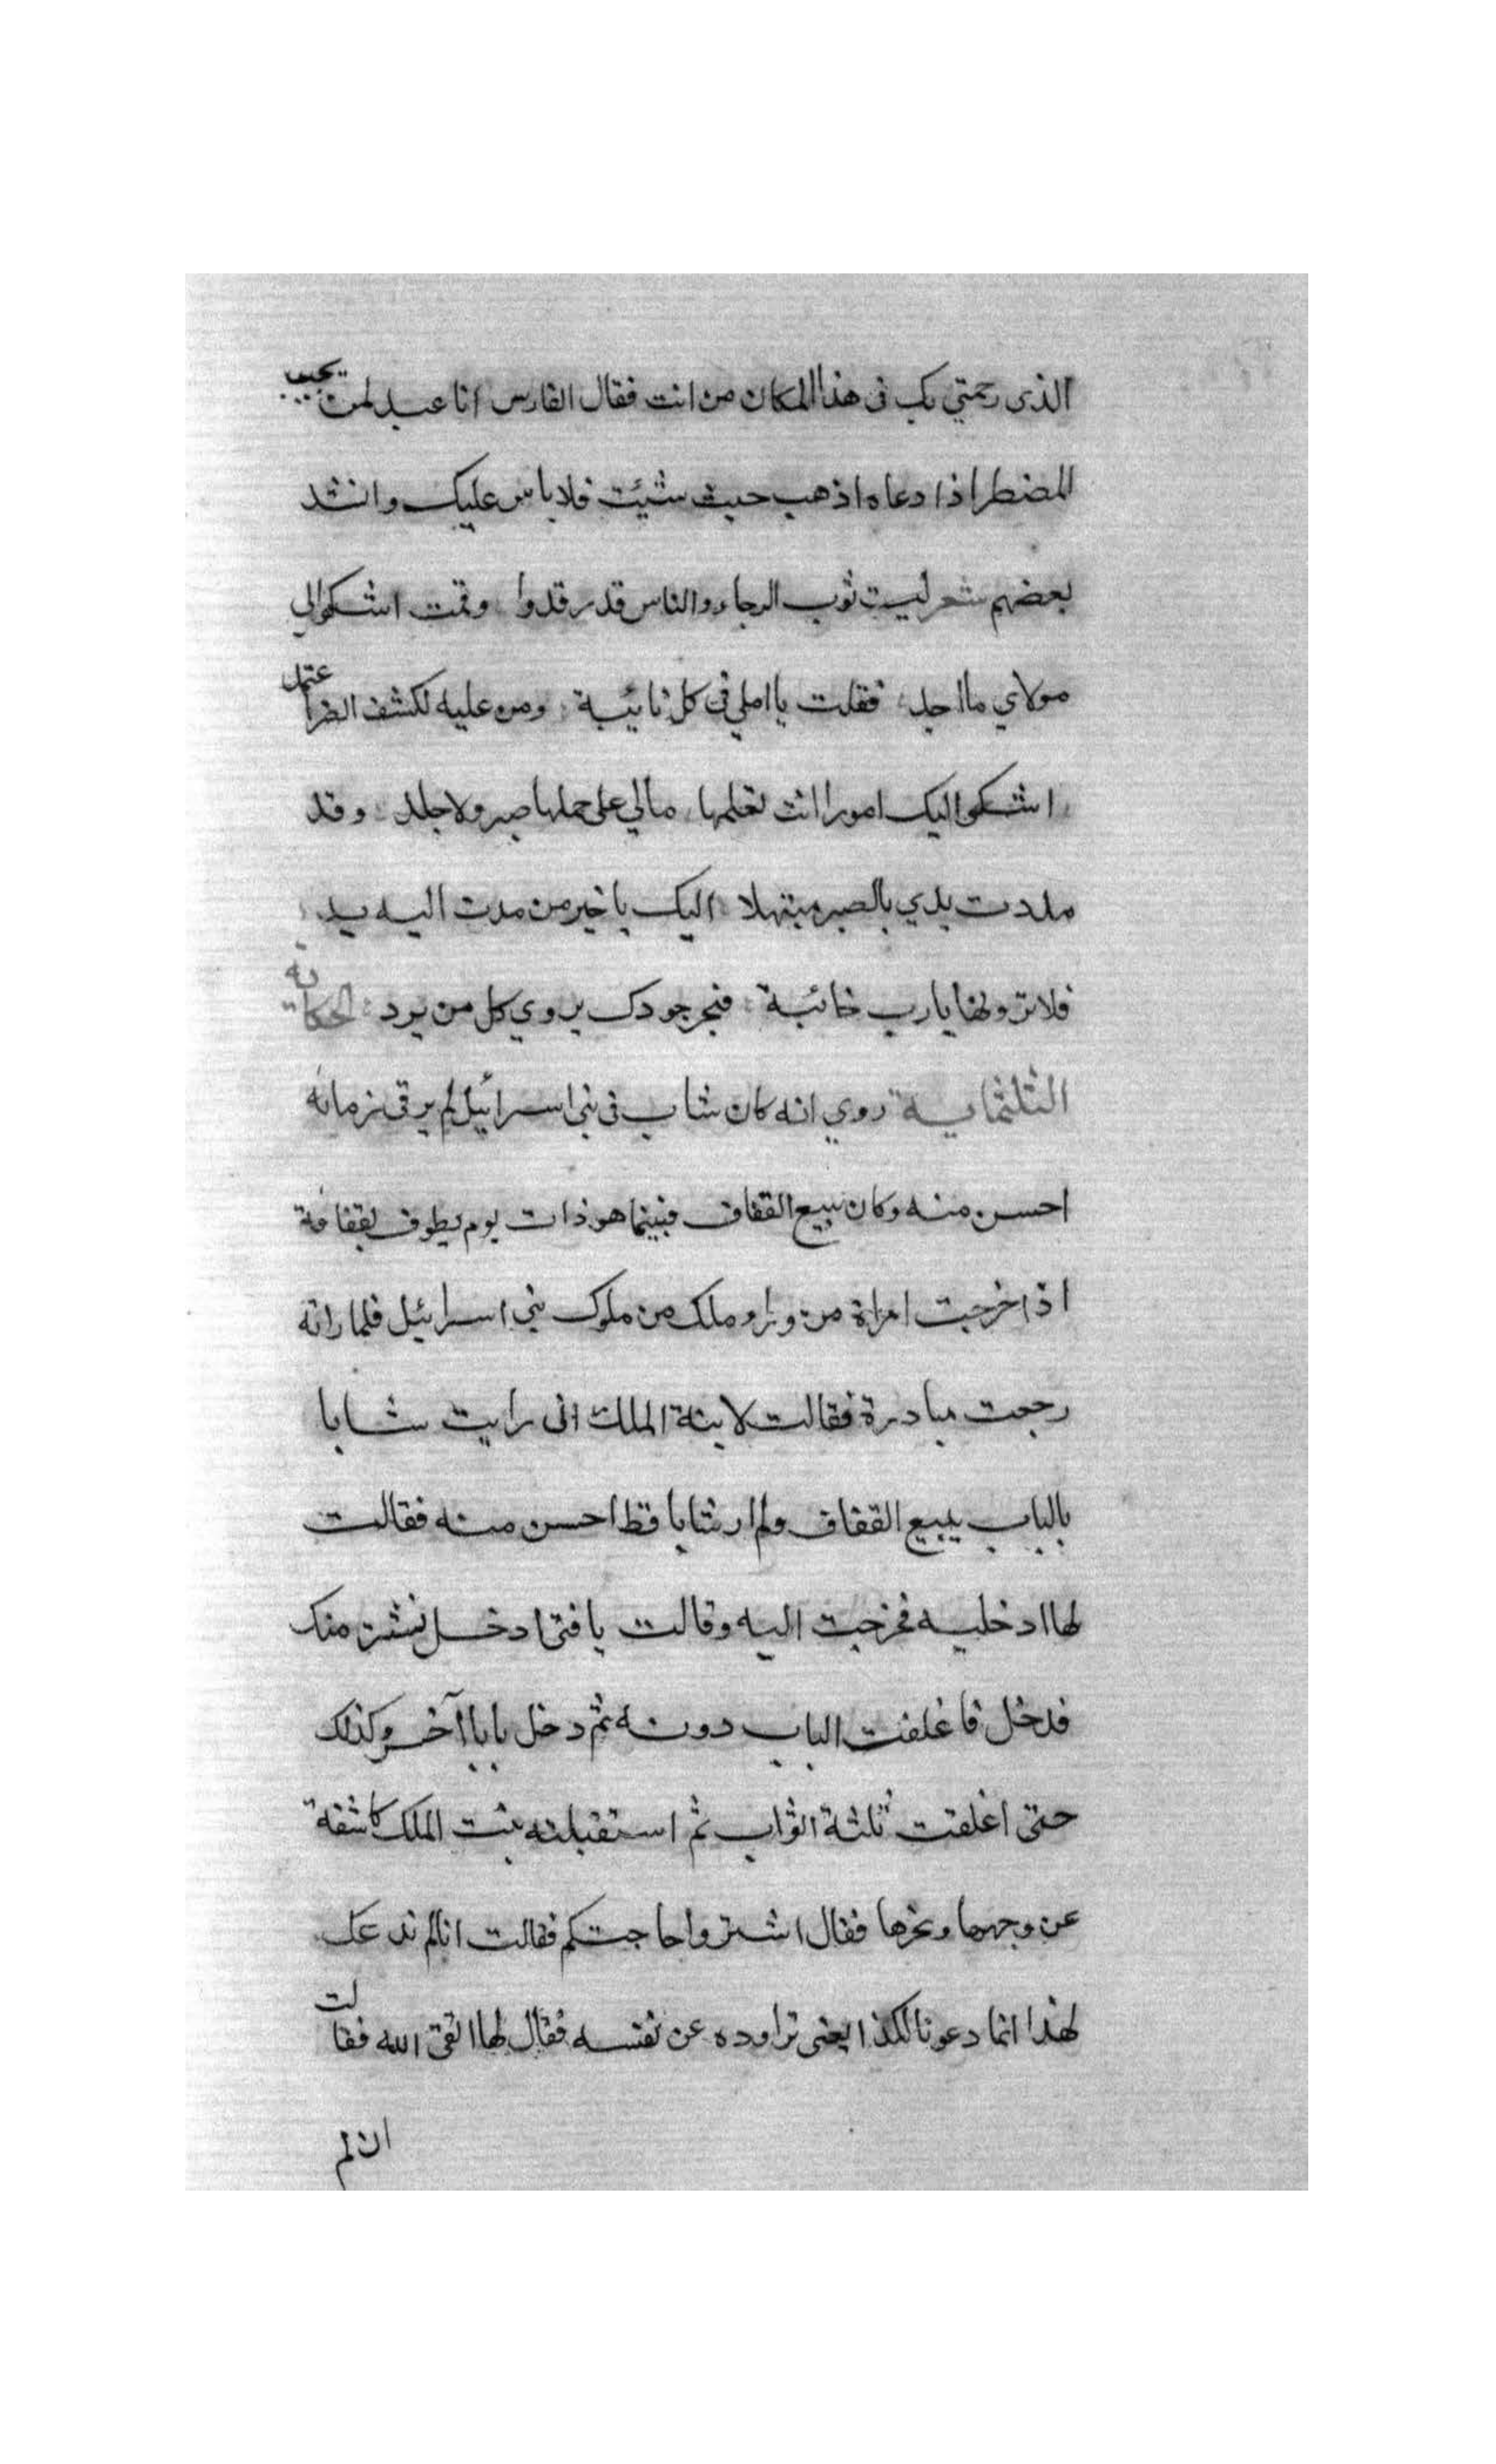 الذى رحمتي بك فى هذا المكان من انت فقال الفارس انا عبد لمن يجيب
المضطر اذا دعاه اذهب حيث شيئت فلا باس عليك وانشد
بعضهم شعر لبست ثوب الرجاء والناس قد رقدوا وقمت اشكوا الي
مولاي ما اجد فقلت يا املي فى كل نائيبة ومن عليه لكشف الضر اعتمد
اشكوا اليك امورا انت تعلمها مالي على حملها صبر ولا جلد وقد
مددت يدي بالصبر مبتهلا اليك يا خير من مدت اليه يد
فلا تردنها يا رب خائبة فبحر جودك يروي كل من يرد الحكاية
الثلثماية روي انه كان شاب فى بنى اسرائيل لم ير فى زمانه
احسن منه وكان يبيع القفاف فبينما هو ذات يوم يطوف بقفافة
اذ اخرجت امراة من دارو ملك من ملوك بني اسرائيل فلما راته
رجعت مبادرة فقالت لابنة الملك انى رايت شابا
بالباب يبيع القفاف ولم ار شابا قط احسن منه فقالت
لها ادخليه فخرجت اليه وقالت يا فتى ادخل نشتر منك
فدخل فاغلقت الباب دونه ثم دخل بابا آخر وكذلك
حتى اغلقت ثلثة ابواب ثم استقبلته بنت الملك كاشفة
عن وجهها ونحرها فقال اشتروا حاجتكم فقالت انا لم ندعك
لهذا انما دعوناك لكذا يعنى تراوده عن نفسه فقال لها اتقى الله فقالت
ان لم